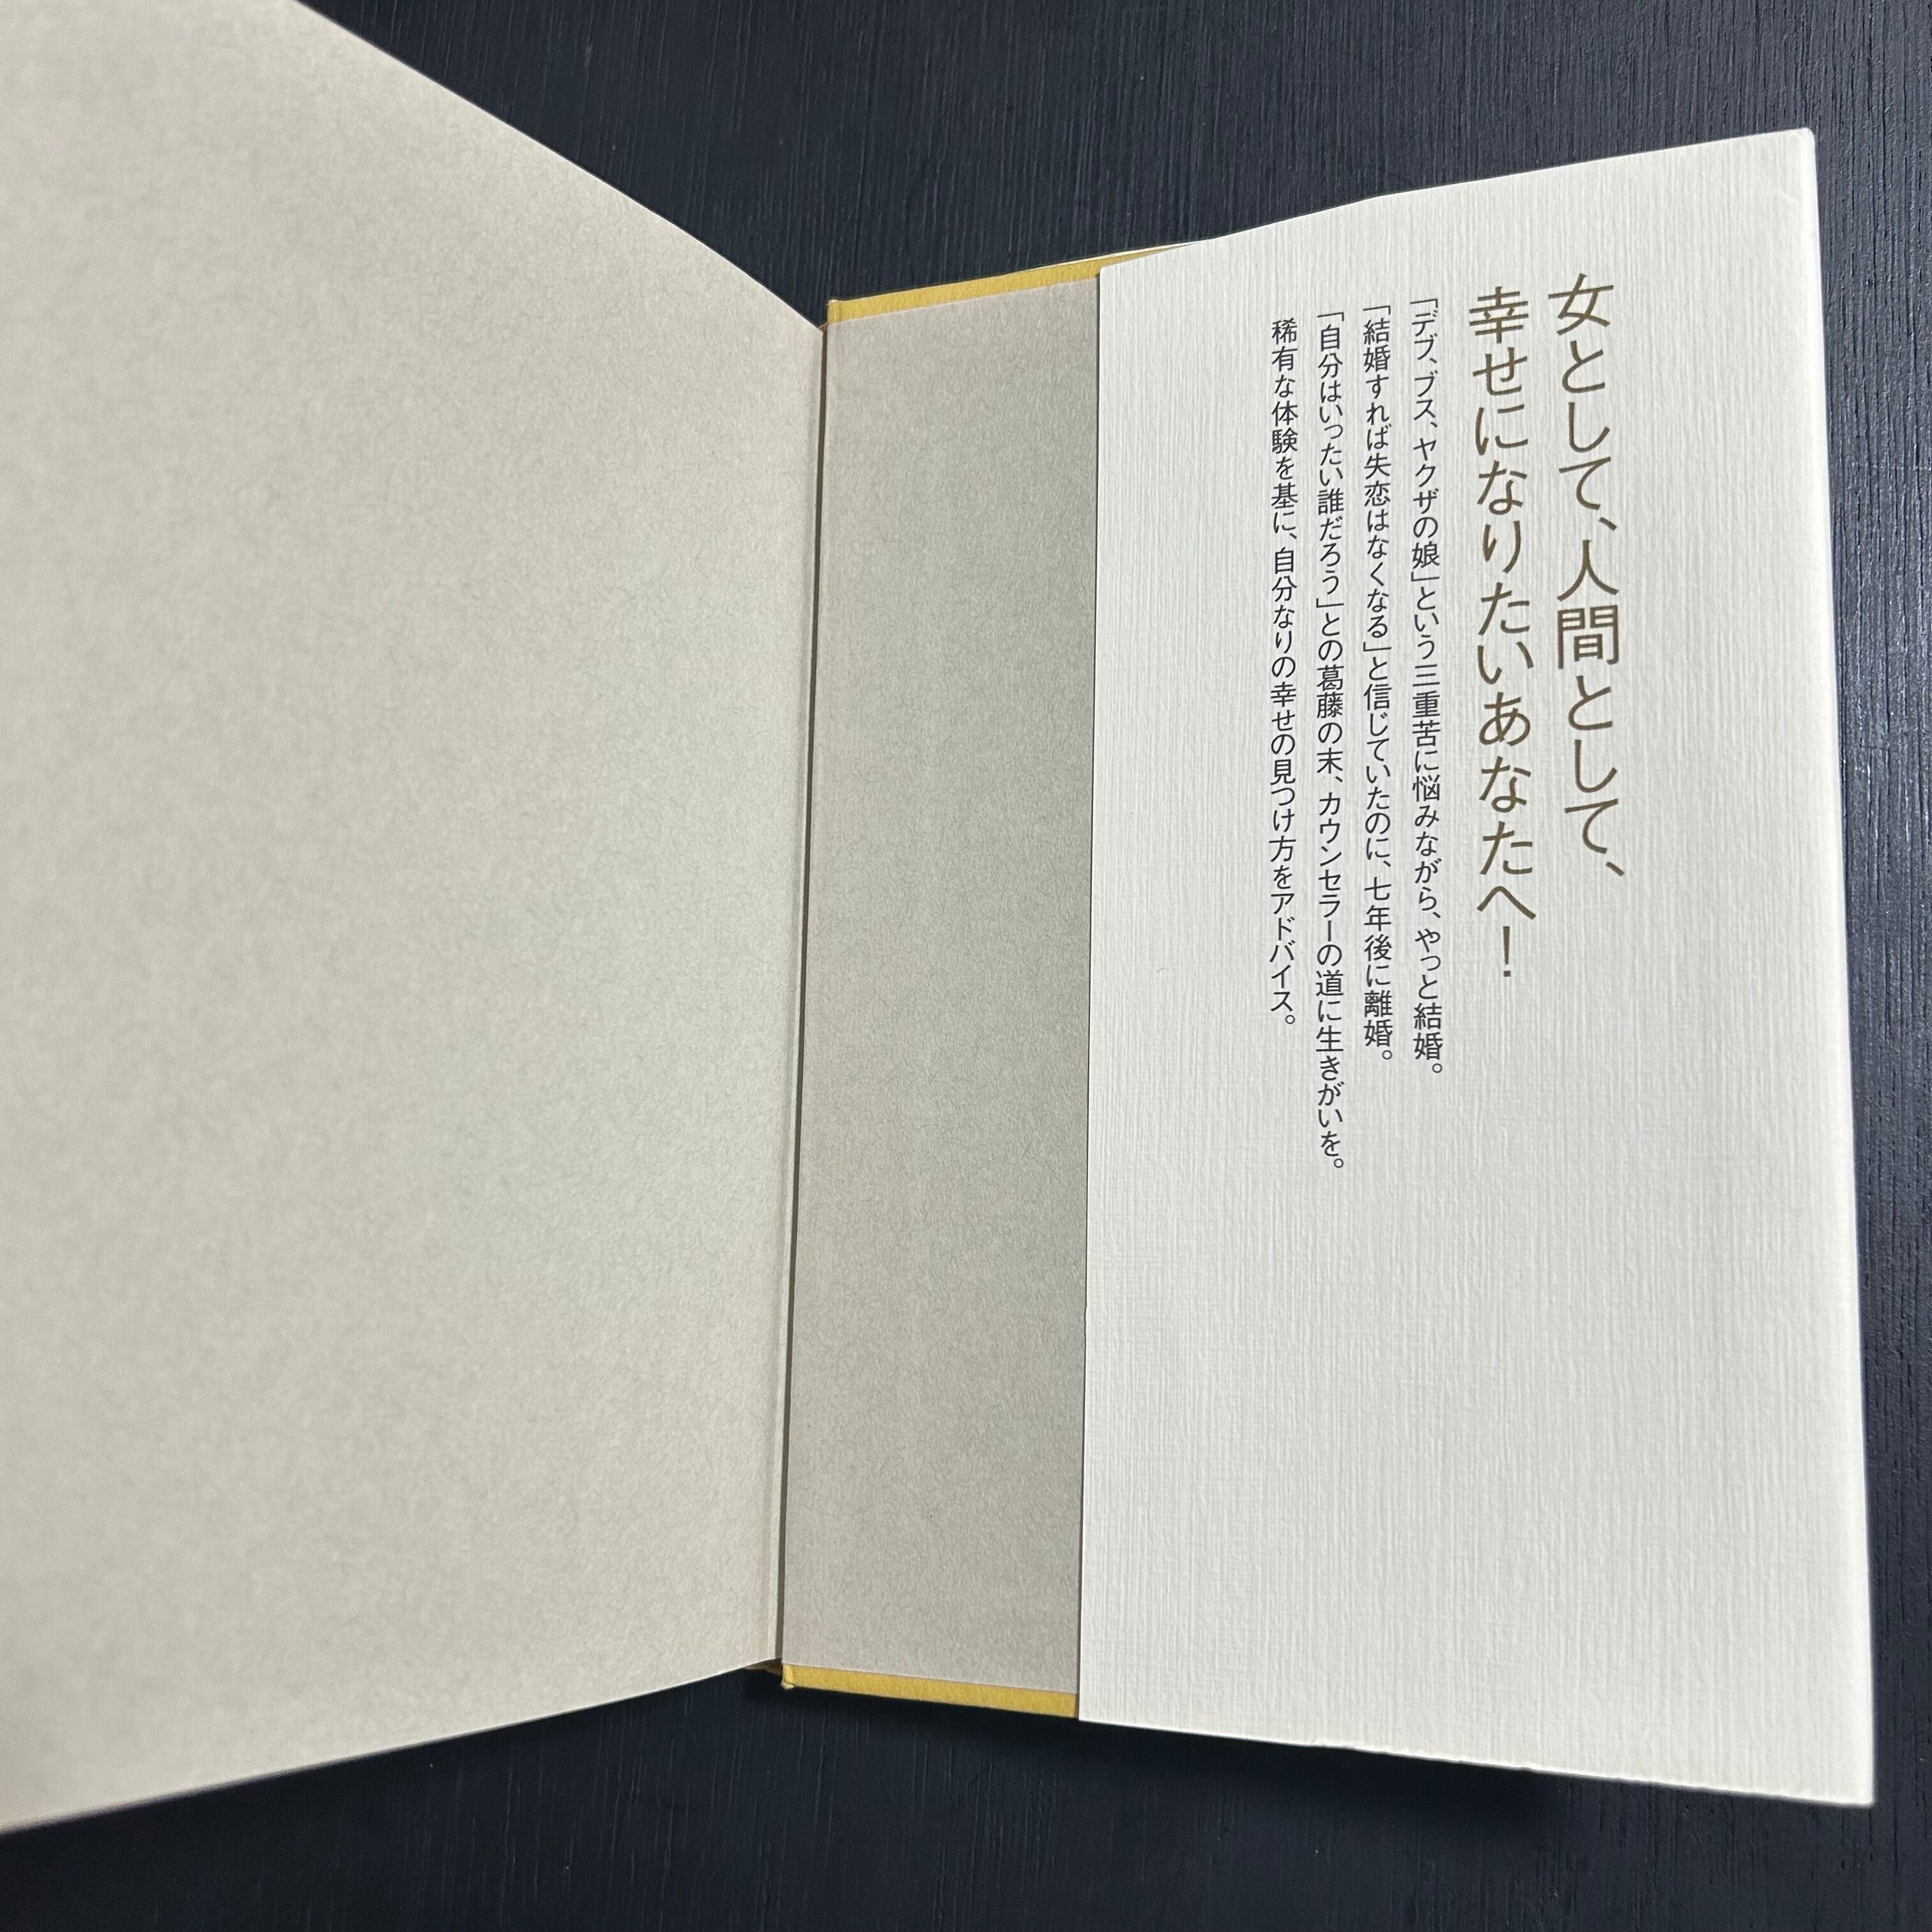 女として、人間として、
幸せになりたいあなたへ！
「デブ、ブス、ヤクザの娘」という三重苦に悩みながら、やっと結婚。
「結婚すれば失恋はなくなる」と信じていたのに、七年後に離婚。
「自分はいったい誰だろう」との葛藤の末、カウンセラーの道に生きがいを。
稀有な体験を基に、自分なりの幸せの見つけ方をアドバイス。